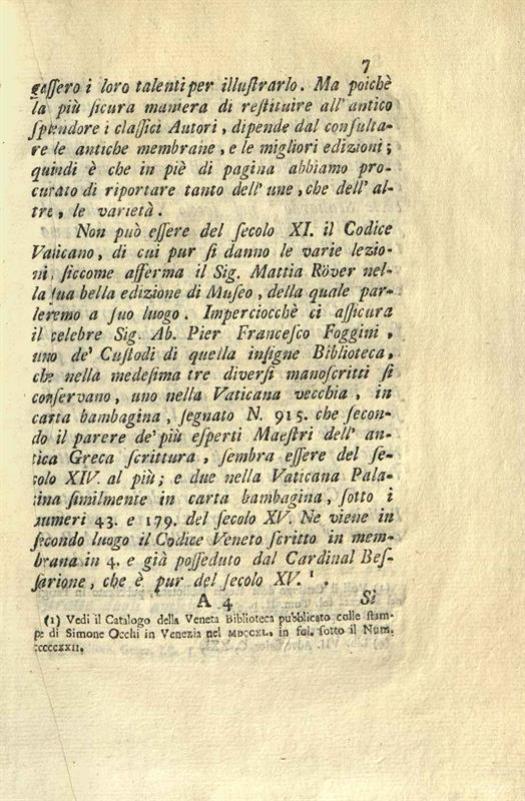 7
gaſſero i loro talenti per illuſtrarlo. Ma poichè
la più ſicura maniera di reſtituire all' antico
ſplendore i claſſici Autori, dipende dal conſulta-
re le antiche membrane, e le migliori edizioni;
quindi è che in piè di pagina abbiamo pro-
curato di riportare tanto dell' une, che dell' al-
tre, le varietà.
Non può eſſere del ſecolo XI. il Codice
Vaticano, di cui pur ſi danno le varie lezio-
ni, ſiccome afferma il Sig. Mattia Röver nel-
la ſua bella edizione di Muſeo, della quale par-
leremo a ſuo luogo. Imperciocchè ci aſſicura
il celebre Sig. Ab. Pier Franceſco Foggini,
uno de' Cuſtodi di quella inſigne Biblioteca,
che nella medeſima tre diverſi manoſcritti ſi
conſervano, uno nella Vaticana vecchia, in
carta bambagina, ſegnato N. 915. che ſecon-
do il parere de' più eſperti Maeſtri dell' an-
tica Greca ſcrittura, ſembra eſſere del ſe-
colo XIV. al più; e due nella Vaticana Pala-
tina ſimilmente in carta bambagina, ſotto i
numeri 43. e 179. del ſecolo XV. Ne viene in
ſecondo luogo il Codice Veneto ſcritto in mem-
brana in 4. e già poſſeduto dal Cardinal Beſ-
ſarione, che è pur del ſecolo XV. ¹.
A 4 Si
(1) Vedi il Catalogo della Veneta Biblioteca pubblicato colle ſtam-
pe di Simone Occhi in Venezia nel MDCCXL. in fol. ſotto il Num.
CCCCCXXII.